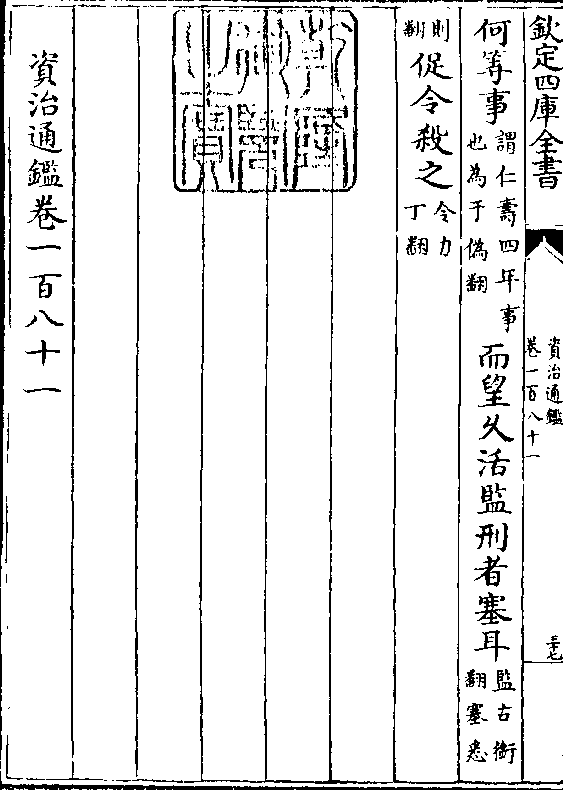 欽定四庫全書
資治通鑑
卷一百八十一
三十七
何等事謂仁壽四年事也為于偽翻而望久活監刑者塞耳監古銜翻塞悉
則翻促令殺之令力丁翻
乾隆御覽之寶
資治通鑑卷一百八十一